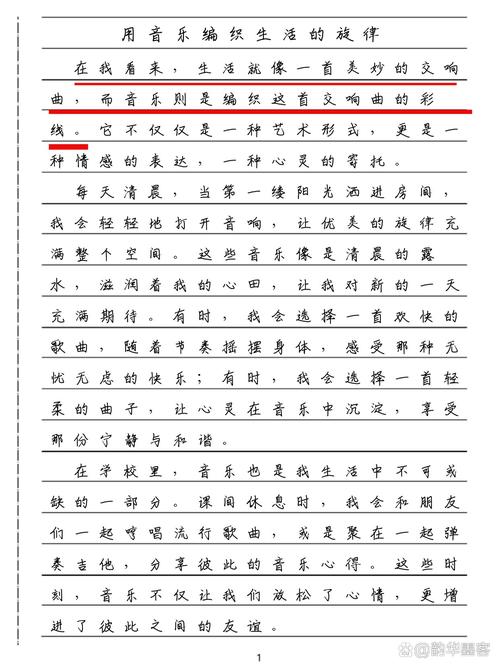 用音乐编织生活的旋律
在我看来，生活就像一首美妙的交响
曲，而音乐则是编织这首交响曲的彩
线。它不仅仅是一种艺术形式，更是一
种情感的表达，一种心灵的寄托。
每天清晨，当第一缕阳光洒进房间，
我会轻轻地打开音响，让优美的旋律充
满整个空间。这些音乐像是清晨的露
水，滋润着我的心田，让我对新的一天
充满期待。有时，我会选择一首欢快的
歌曲，随着节奏摇摆身体，感受那种无
忧无虑的快乐；有时，我会选择一首轻
柔的曲子，让心灵在音乐中沉淀，享受
那份宁静与和谐。
在学校里，音乐也是我生活中不可或
缺的一部分。课间休息时，我会和朋友
们一起哼唱流行歌曲，或是聚在一起弹
奏吉他，分享彼此的音乐心得。这些时
刻，音乐不仅让我们放松了心情，更增
进了彼此之间的友谊。
1